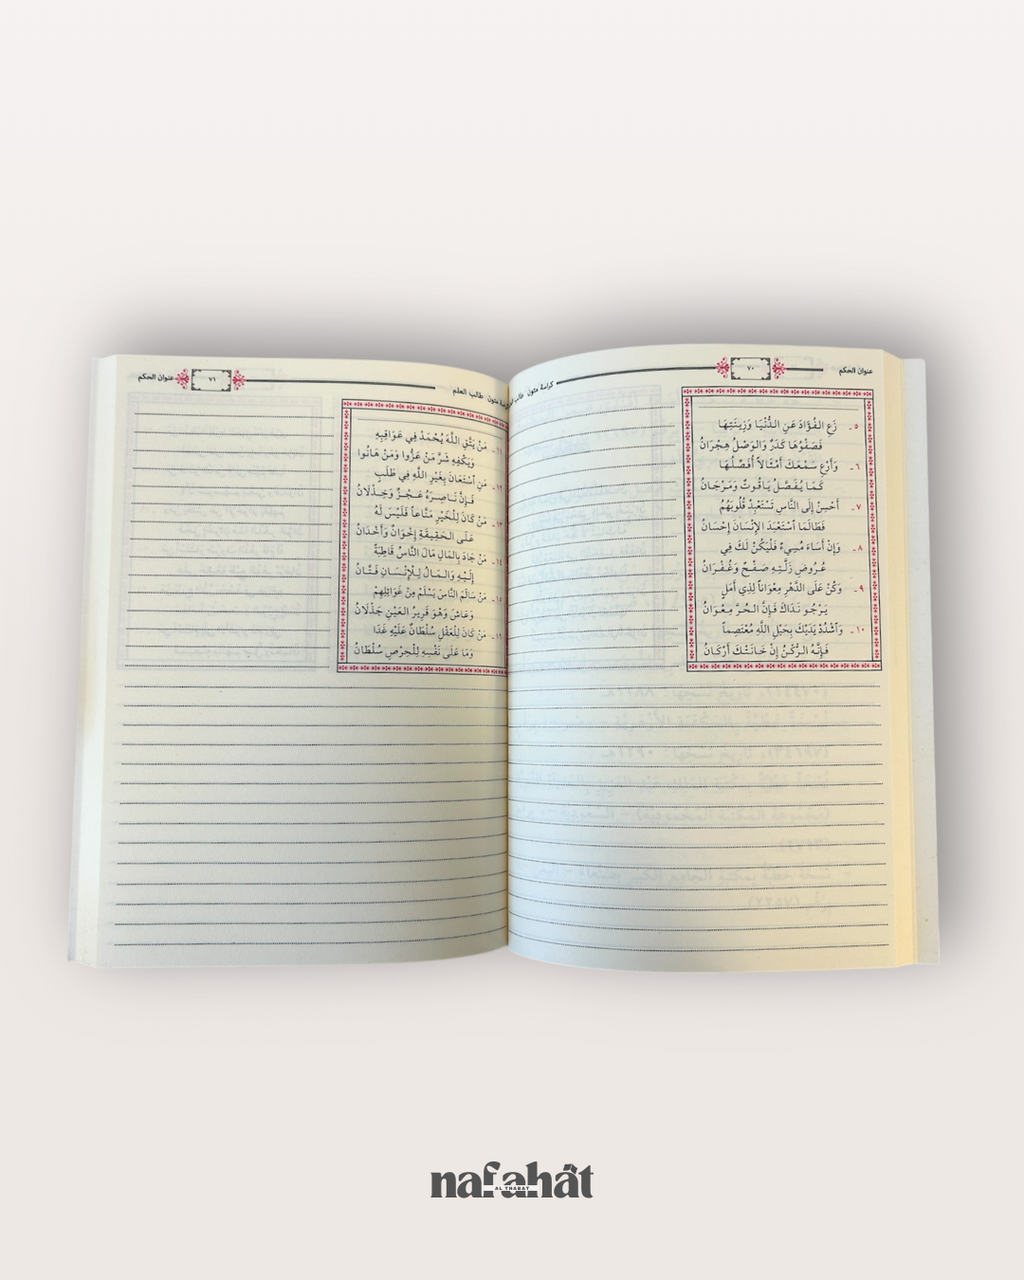 عنوان الحكم
٧٠
كراسة متون طالب
٥ - زَعِ الفُؤَادَ عَنِ الدُّنْيَا وَزِينَتِهَا
فَصَفْوُهَا كَدَرٌ وَالوَصْلُ هِجْرَانُ
٦ - وَأَرْعِ سَمْعَكَ أَمْثَالاً أُفَصِّلُهَا
كَمَا يُفَصَّلُ يَاقُوتٌ وَمَرْجَانُ
٧ - أَحْسِنْ إِلَى النَّاسِ تَسْتَعْبِدْ قُلُوبَهُمُ
فَطَالَمَا اسْتَعْبَدَ الإِنْسَانَ إِحْسَانُ
٨ - وَإِنْ أَسَاءَ مُسِيءٌ فَلْيَكُنْ لَكَ فِي
عُرُوضِ زَلَّتِهِ صَفْحٌ وَغُفْرَانُ
٩ - وَكُنْ عَلَى الدَّهْرِ مِعْوَاناً لِذِي أَمَلٍ
يَرْجُو نَدَاكَ فَإِنَّ الحُرَّ مِعْوَانُ
١٠ - وَاشْدُدْ يَدَيْكَ بِحَبْلِ اللَّهِ مُعْتَصِماً
فَإِنَّهُ الرُّكْنُ إِنْ خَانَتْكَ أَرْكَانُ
كراسة متون طالب العلم
٧١
عنوان الحكم
١١ - مَنْ يَتَّقِ اللَّهَ يُحْمَدْ فِي عَوَاقِبِهِ
وَيَكْفِهِ شَرَّ مَنْ عَزُّوا وَمَنْ هَانُوا
١٢ - مَنِ اسْتَعَانَ بِغَيْرِ اللَّهِ فِي طَلَبٍ
فَإِنَّ نَاصِرَهُ عَجْزٌ وَخِذْلَانُ
١٣ - مَنْ كَانَ لِلْخَيْرِ مَنَّاعاً فَلَيْسَ لَهُ
عَلَى الحَقِيقَةِ إِخْوَانٌ وَأَخْدَانُ
١٤ - مَنْ جَادَ بِالمَالِ مَالَ النَّاسُ قَاطِبَةً
إِلَيْهِ وَالمَالُ لِلْإِنْسَانِ فَتَّانُ
١٥ - مَنْ سَالَمَ النَّاسَ يَسْلَمْ مِنْ غَوَائِلِهِمْ
وَعَاشَ وَهُوَ قَرِيرُ العَيْنِ جَذْلَانُ
١٦ - مَنْ كَانَ لِلْعَقْلِ سُلْطَانٌ عَلَيْهِ غَدَا
وَمَا عَلَى نَفْسِهِ لِلْحِرْصِ سُلْطَانُ
nafahât
AL THABAT